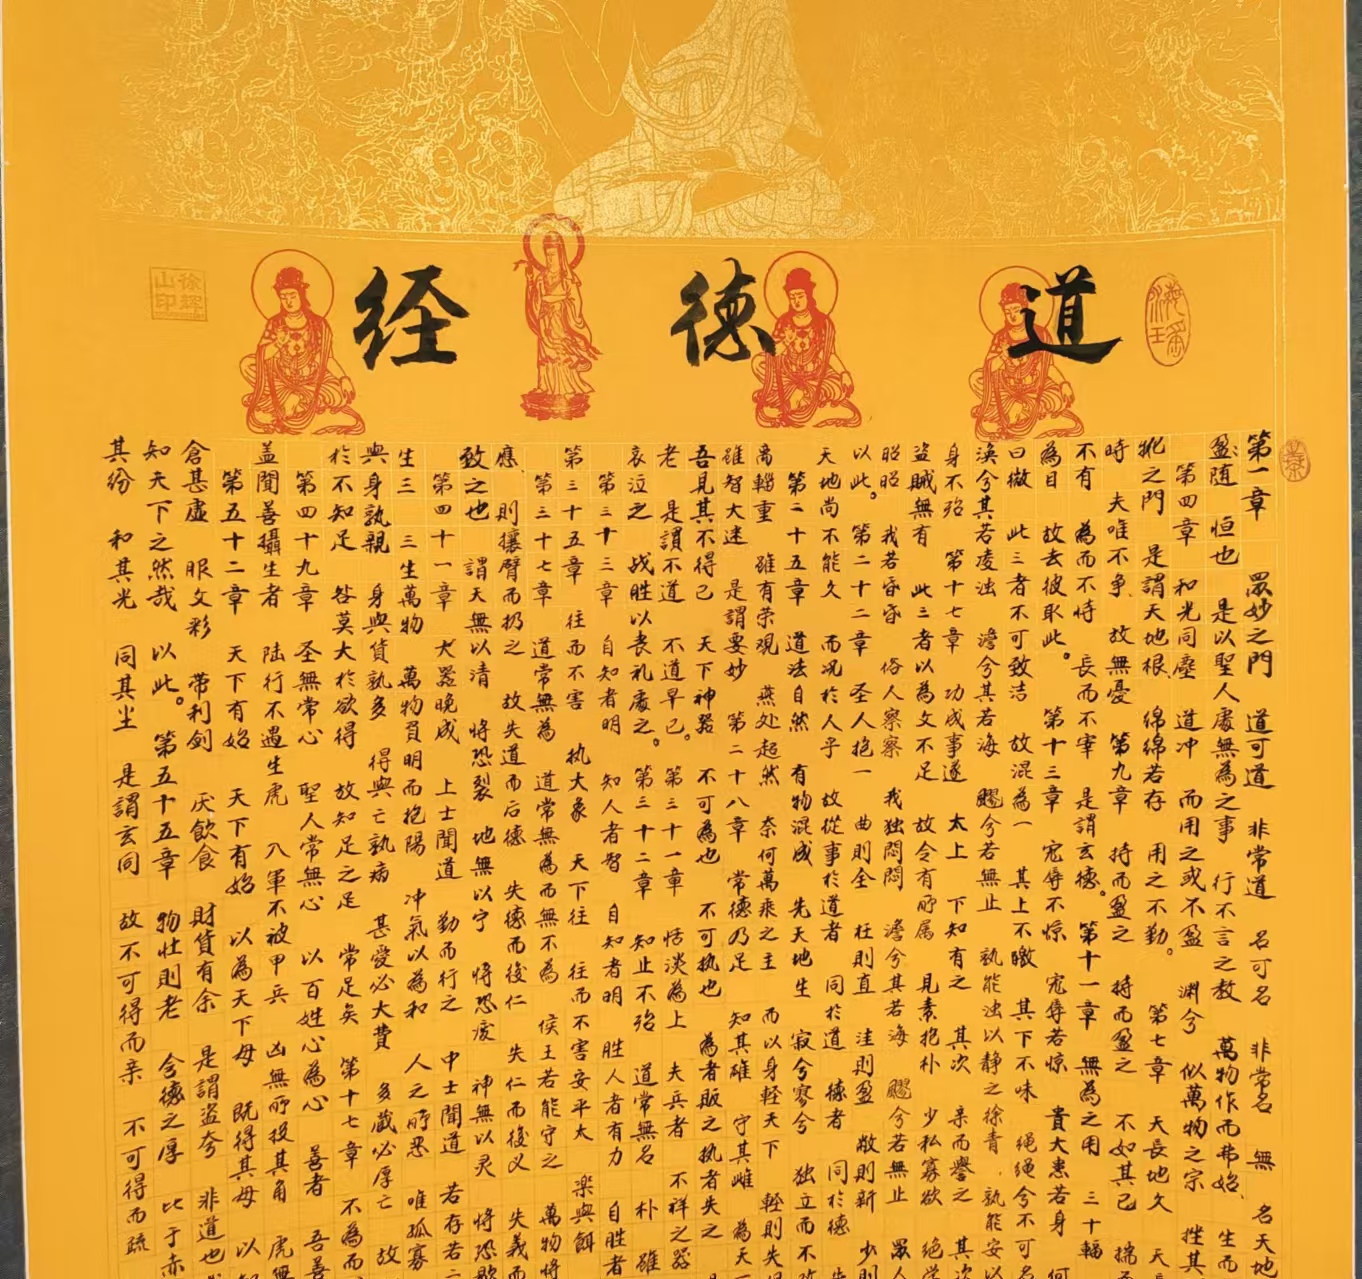 道德经
徐辉山印
第一章 眾妙之門 道可道 非常道 名可名 非常名 無 名天地
盈随 恒也 是以聖人處無為之事 行不言之教 萬物作而弗始 生而
第四章 和光同塵 道冲 而用之或不盈 渊兮 似萬物之宗 挫其
牝之門 是謂天地根 绵绵若存 用之不勤。 第七章 天長地久 天
時 夫唯不争 故無憂 第九章 持而盈之 持而盈之 不如其已 揣
不有 為而不恃 長而不宰 是謂玄德。 第十一章 無為之用 三十輻
為目 故去彼取此。 第十三章 宠辱不惊 宠辱若惊 貴大患若身 何
曰微 此三者不可致洁 故混為一 其上不皦 其下不昧 绳绳兮不可名
涣兮其若凌浊 澹兮其若海 飂兮若無止 孰能浊以静之徐青 孰能安以
身不殆 第十七章 功成事遂 太上 下知有之 其次 亲而譽之 其次
盗贼無有 此三者以為文不足 故令有所属 見素抱朴 少私寡欲 绝学
昭昭 我若昏昏 俗人察察 我独悶悶 澹兮其若海 飂兮若無止 眾人
以此。 第二十二章 圣人抱一 曲則全 枉則直 洼則盈 敝則新 少則
天地尚不能久 而况於人乎 故從事於道者 同於道 德者 同於德
第二十五章 道法自然 有物混成 先天地生 寂兮寥兮 独立而不改
离輜重 雖有荣观 燕处超然 奈何萬乘之主 而以身軽天下 軽則失
雖智大迷 是謂要妙 第二十八章 常德乃足 知其雄 守其雌 為天
吾見其不得已 天下神器 不可為也 不可执也 為者敗之 执者失之
老 是謂不道 不道早已。 第三十一章 恬淡為上 夫兵者 不祥之器
哀泣之 战胜以丧礼處之。 第三十二章 知止不殆 道常無名 朴 雖
第三十三章 自知者明 知人者智 自知者明 胜人者有力 自胜者
第三十五章 往而不害 执大象 天下往 往而不害安平太 楽與餌
第三十七章 道常無為 道常無為而無不為 侯王若能守之 萬物将
應 則攘臂而扔之 故失道而后德 失德而後仁 失仁而後义 失義而
致之也 謂天無以清 将恐裂 地無以宁 将恐废 神無以灵 将恐歇
第四十一章 大器晚成 上士聞道 勤而行之 中士聞道 若存若
生三 三生萬物 萬物負明而抱陽 冲氣以為和 人之所恶 唯孤寡
與身孰親 身與貨孰多 得與亡孰病 甚爱必大費 多藏必厚亡 故
於不知足 咎莫大於欲得 故知足之足 常足矣 第十七章 不為而
第四十九章 圣無常心 聖人常無心 以百姓心為心 善者 吾善
盖聞善攝生者 陆行不遇生虎 入軍不被甲兵 凶無所投其角 虎無
第五十二章 天下有始 天下有始 以為天下母 既得其母 以知
倉甚虚 服文彩 带利剑 厌飲食 財貨有余 是謂盗夸 非道也
知天下之然哉 以此。 第五十五章 物壮則老 含德之厚 比于赤
其纷 和其光 同其尘 是謂玄同 故不可得而亲 不可得而疏